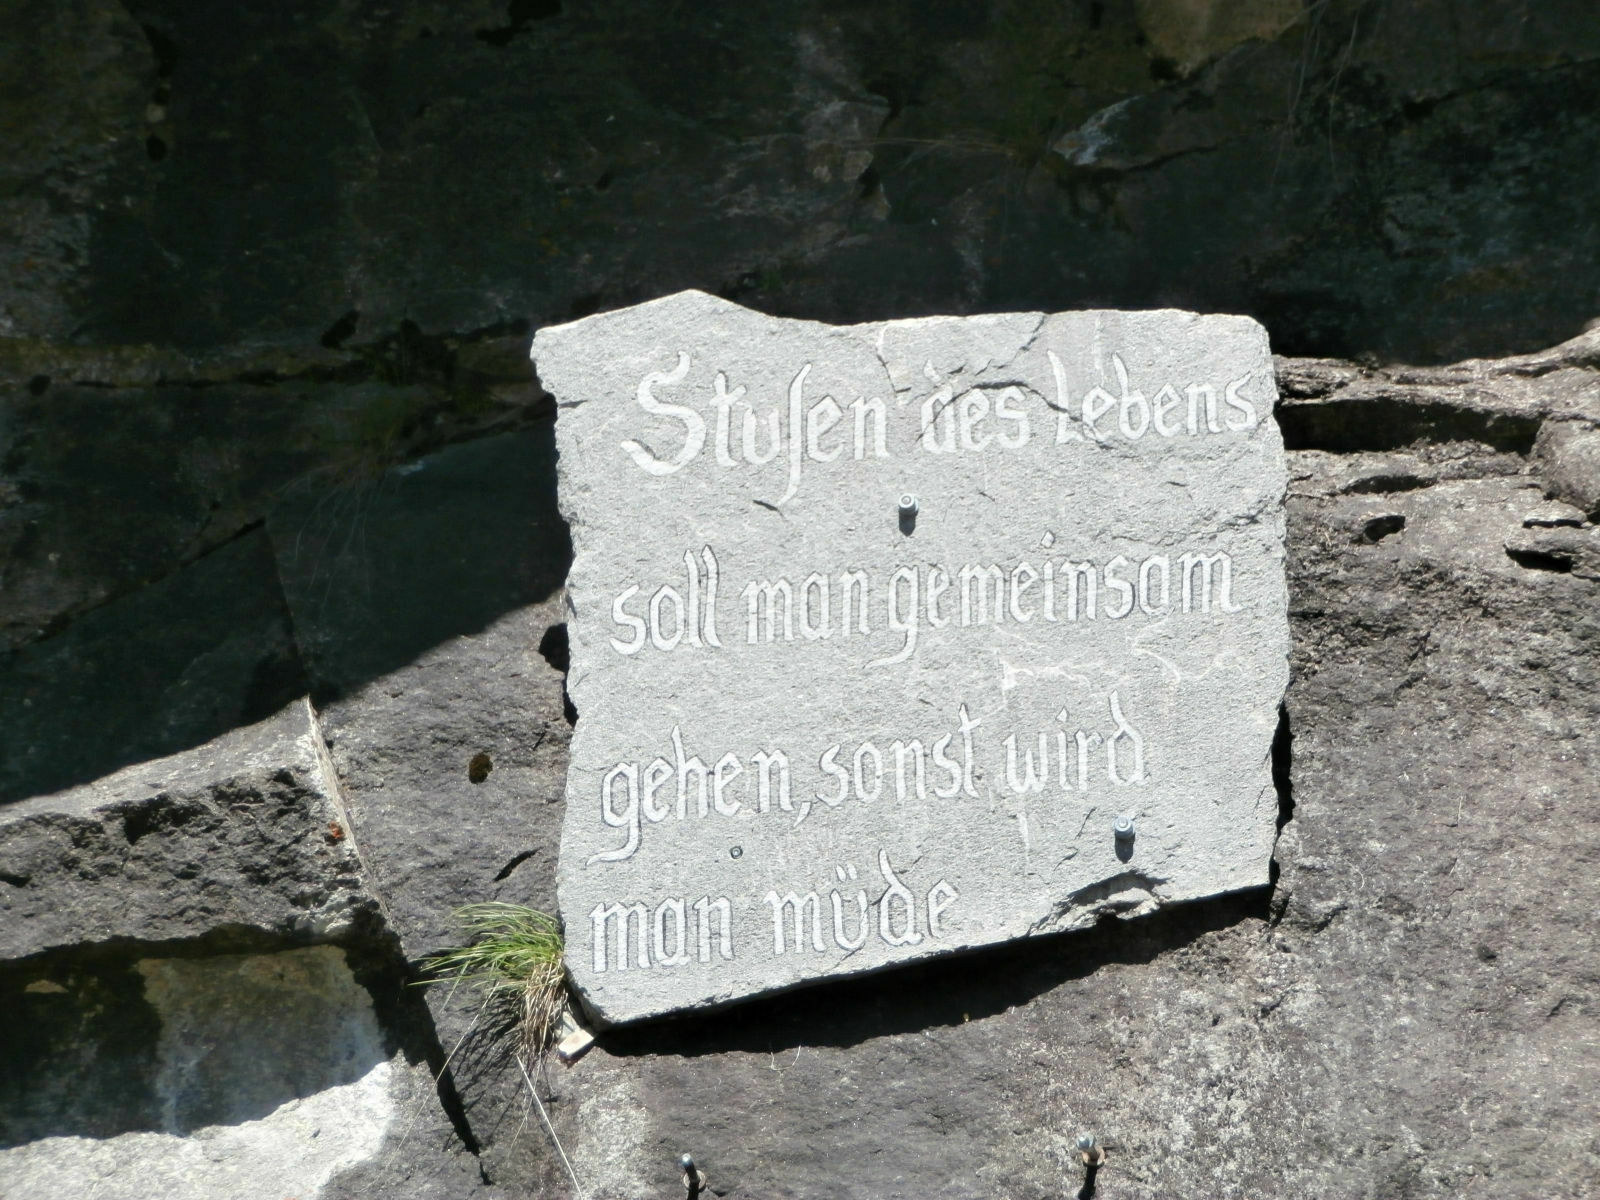 Stufen des Lebens
soll man gemeinsam
gehen, sonst wird
man müde